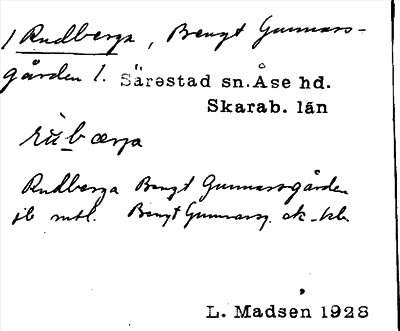 1 Rudberga, Bengt Gunnars-
gården 1. Särestad sn. Åse hd.
Skarab. län
Rudberga Bengt Gunnarsgården
jb mtl. Bengt Gunnarsg. ek.kb.
L. Madsen 1928